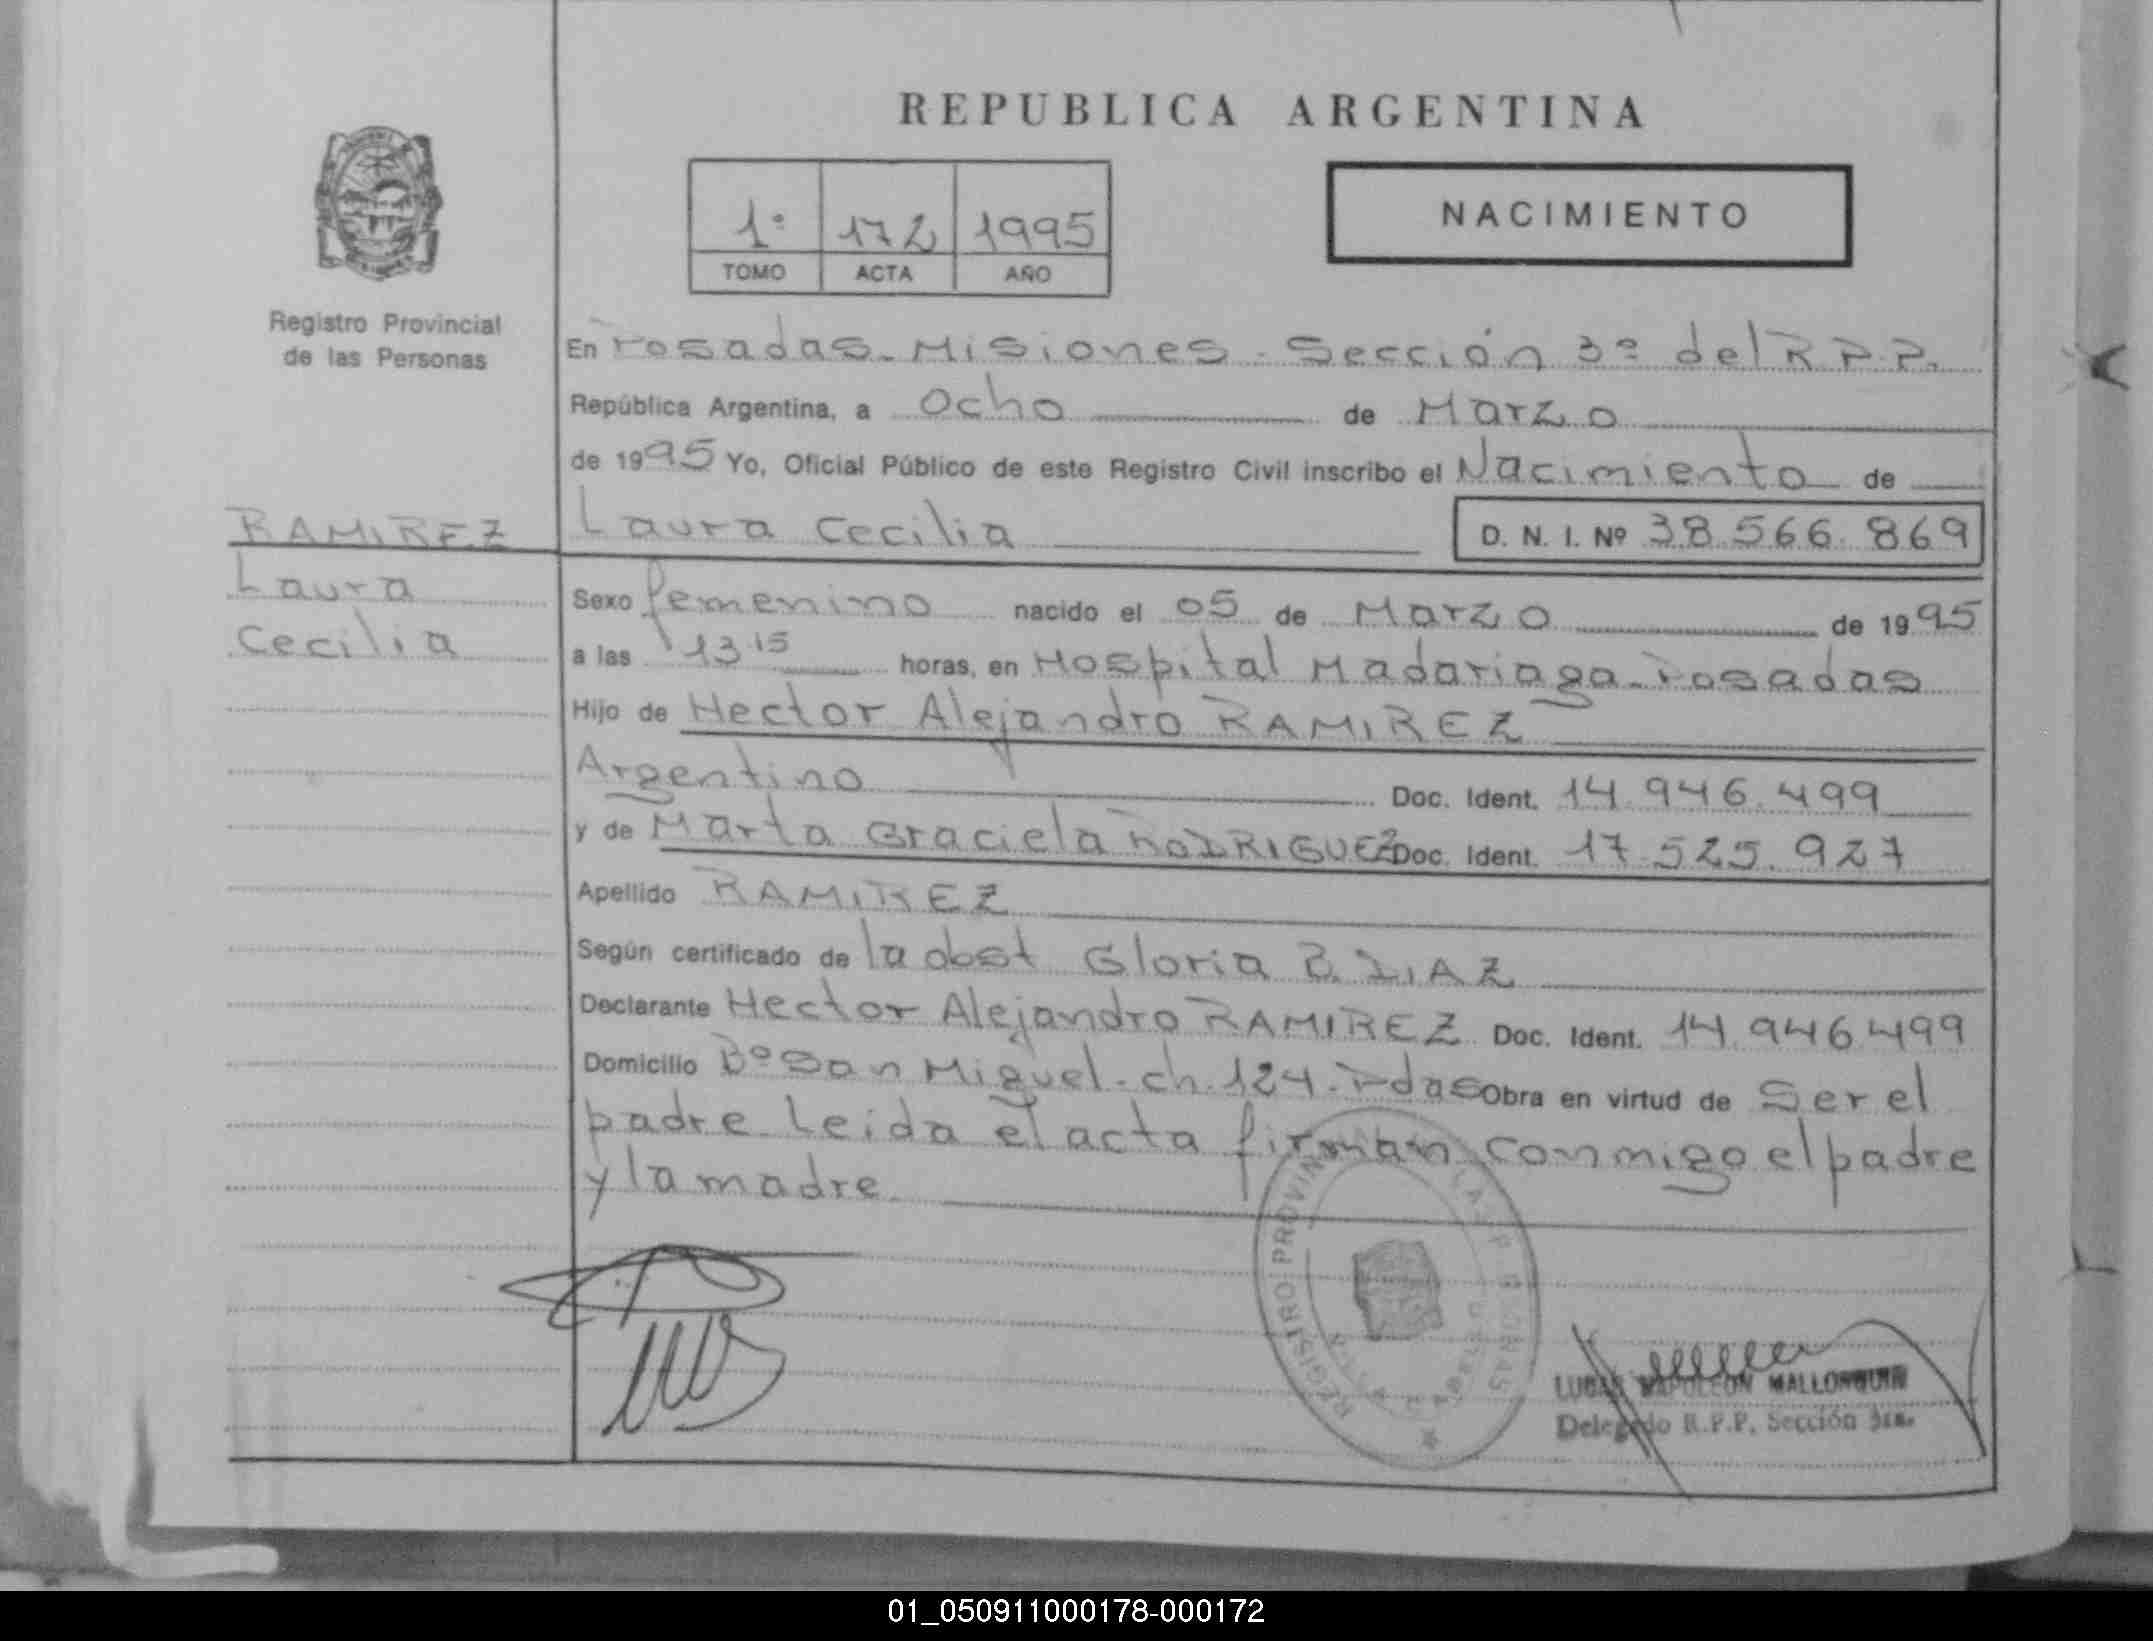 REPUBLICA ARGENTINA
1º 172 1995
TOMO ACTA AÑO
NACIMIENTO
Registro Provincial
de las Personas
En Posadas - Misiones - Sección 3º del R.P.P.
República Argentina, a Ocho de Marzo
de 1995 Yo, Oficial Público de este Registro Civil inscribo el Nacimiento de
Laura Cecilia D. N. I. Nº 38.566.869
RAMIREZ
Laura
Cecilia
Sexo femenino nacido el 05 de Marzo de 1995
a las 13 15 horas, en Hospital Madariaga - Posadas
Hijo de Hector Alejandro RAMIREZ
Argentino Doc. Ident. 14.946.499
y de Marta Graciela RODRIGUEZ Doc. Ident. 17.525.927
Apellido RAMIREZ
Según certificado de la obst Gloria B. DIAZ
Declarante Hector Alejandro RAMIREZ Doc. Ident. 14.946.499
Domicilio Bº San Miguel - ch. 124 - Pdas Obra en virtud de Ser el
padre Leida el acta firman conmigo el padre
y la madre
REGISTRO PROVINCIAL LAS PERSONAS
LUCAS NAPOLEON MALLORQUIN
Delegado R.P.P. Sección 3ra.
01_050911000178-000172